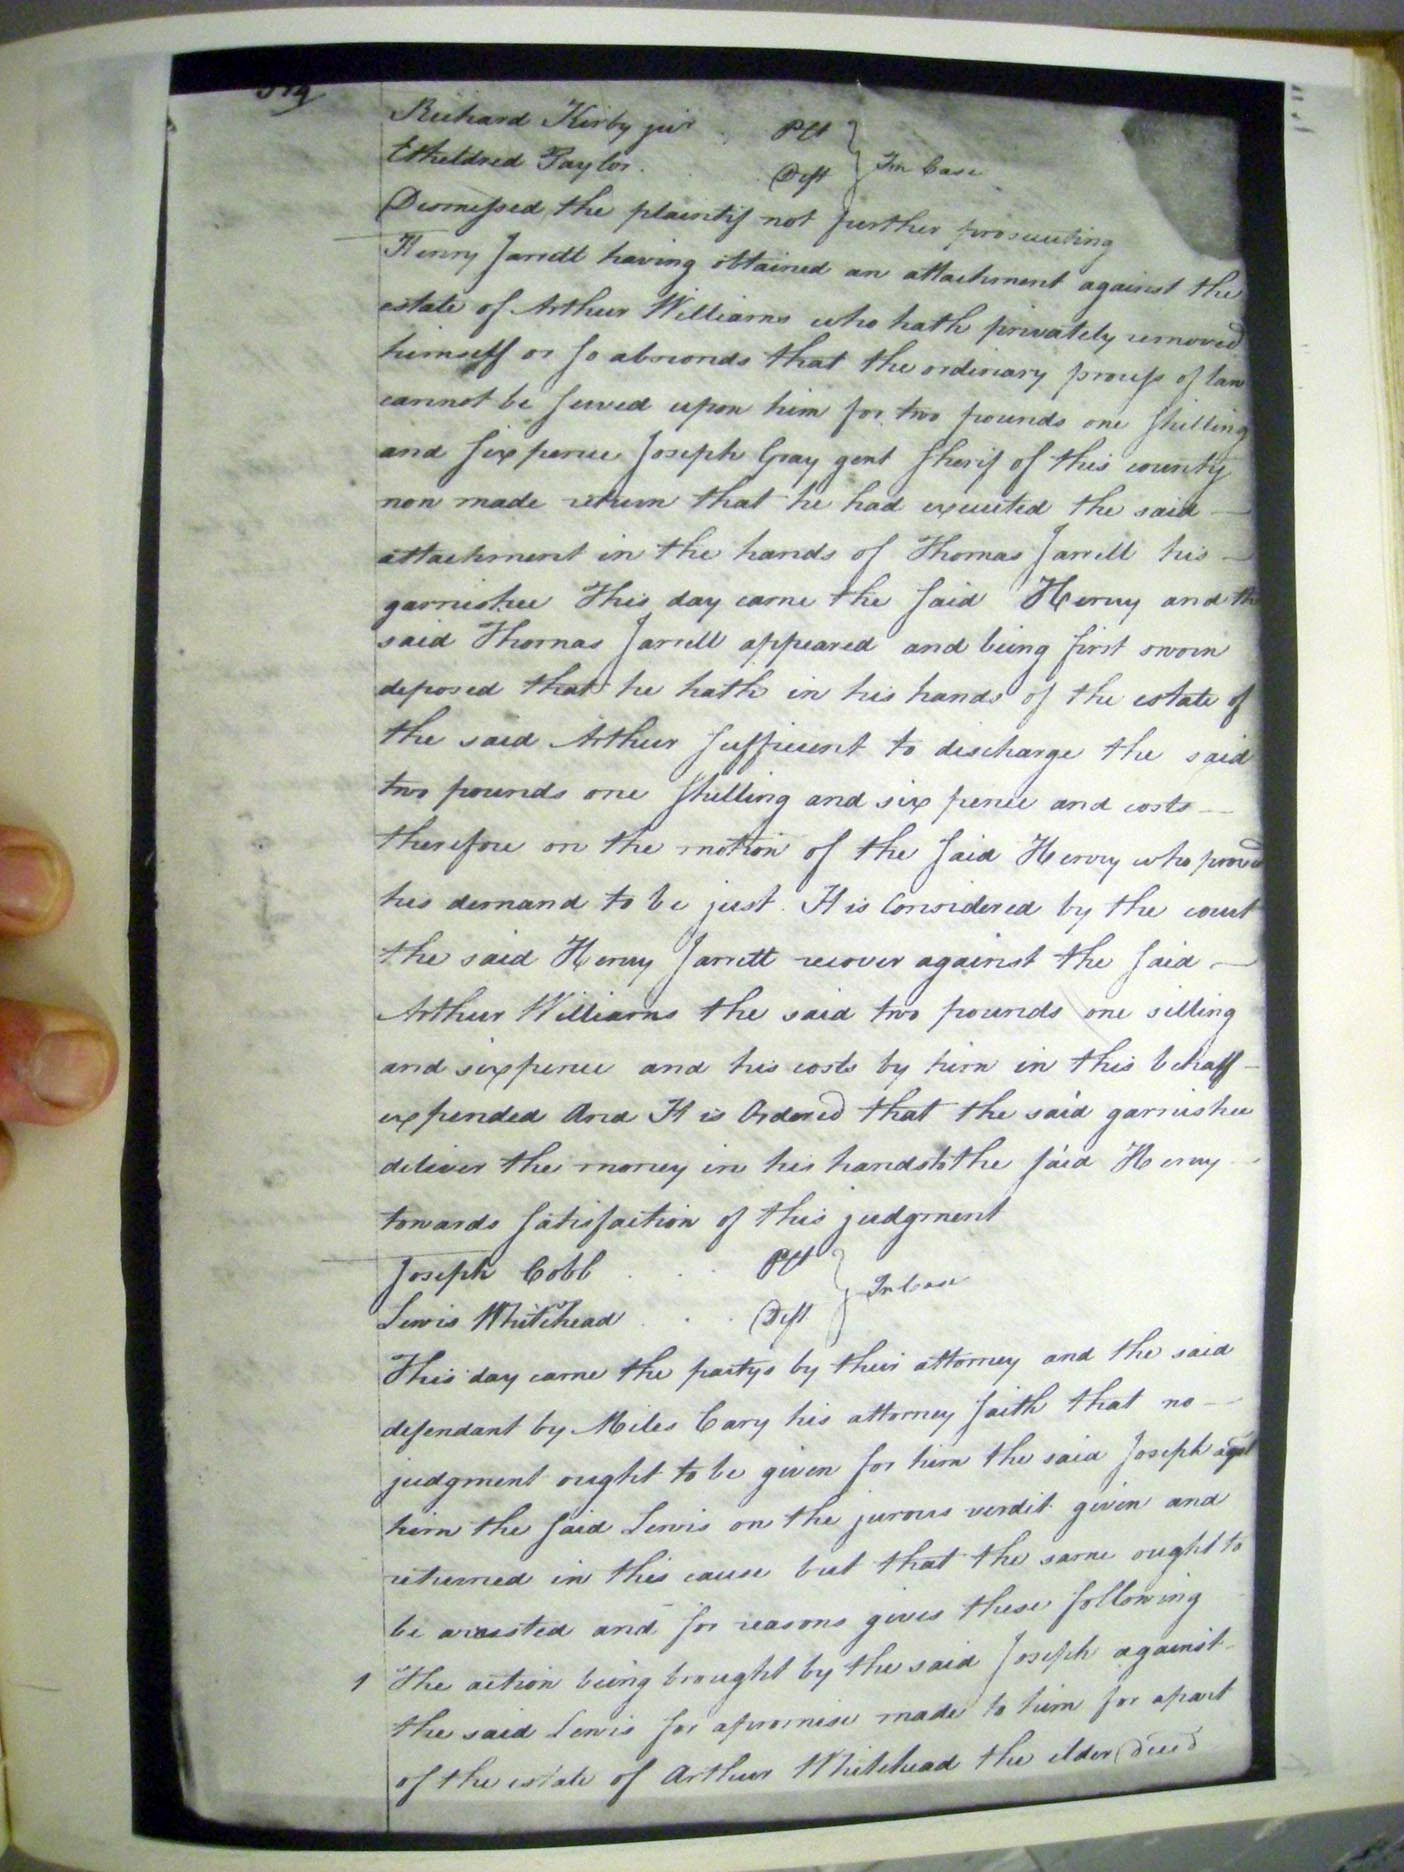 Richard Kirby jur . Plt
Etheldred Taylor . . . Deft } In Case
Dismissed the plaintif not further prosecuting
Henry Jarrell having obtained an attachment against the
estate of Arthur Williams who hath privately removed
himself or so absconds that the ordinary process of law
cannot be served upon him for two pounds one shilling
and six pence Joseph Gray gent Sherif of this county
now made return that he had executed the said
attachment in the hands of Thomas Jarrell his
garnishee This day came the said Henry and the
said Thomas Jarrell appeared and being first sworn
deposed that he hath in his hands of the estate of
the said Arthur sufficient to discharge the said
two pounds one shilling and six pence and costs
therefore on the motion of the said Henry who proved
his demand to be just It is Considered by the court
the said Henry Jarrell recover against the said
Arthur Williams the said two pounds one silling
and sixpence and his costs by him in this behalf
expended And It is Ordered that the said garnishee
deliver the money in his hands to the said Henry
towards satisfaction of this judgment
Joseph Cobb . . . Plt
Lewis Whitehead . . . Deft } In Case
This day came the partys by their attorney and the said
defendant by Miles Cary his attorney saith that no
judgment ought to be given for him the said Joseph agst
him the said Lewis on the jurous verdit given and
returned in this cause but that the same ought to
be arrested and for reasons gives these following
1 The action being brought by the said Joseph against
the said Lewis for apromise made to him for apart
of the estate of Arthur Whitehead the elder deced